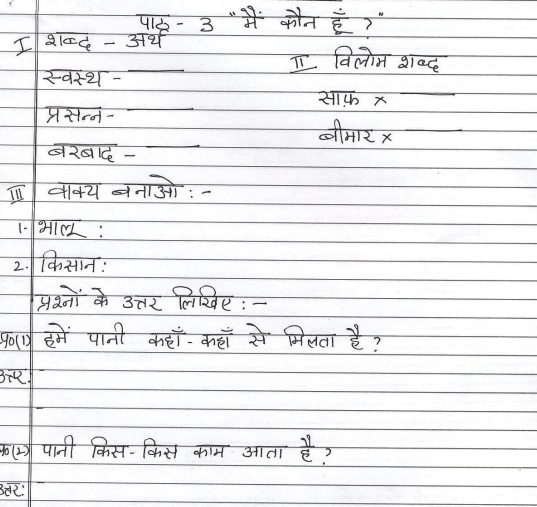 पाठ - 3 "मैं कौन हूँ ?"
I शब्द - अर्थ
स्वस्थ -
प्रसन्न -
बरबाद -
II विलोम शब्द
साफ़ ×
बीमार ×
III वाक्य बनाओ : -
1. भालू :
2. किसान :
प्रश्नों के उत्तर लिखिए : -
प्र०(1) हमें पानी कहाँ - कहाँ से मिलता है ?
उत्तर:
प्र०(2) पानी किस - किस काम आता है ?
उत्तर: